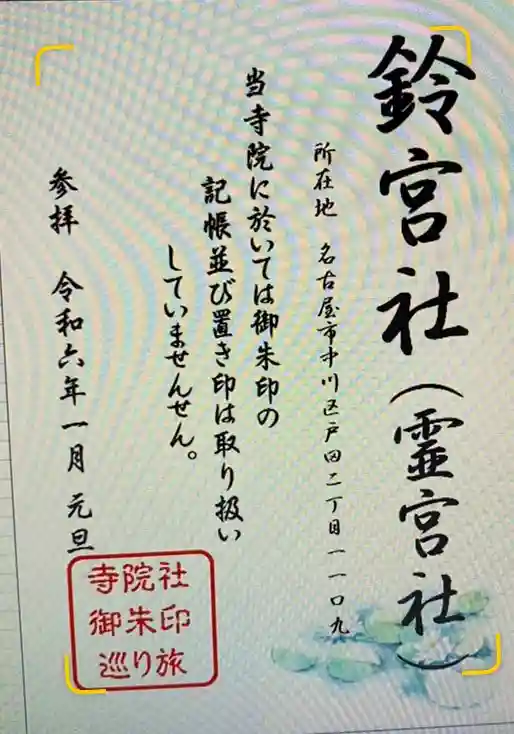 鈴宮社(霊宮社)
所在地 名古屋市中川区戸田二丁目一一〇九
当寺院に於いては御朱印の
記帳並び置き印は取り扱い
していませんせん。
参拝 令和六年一月 元旦
寺院社
御朱印
巡り旅